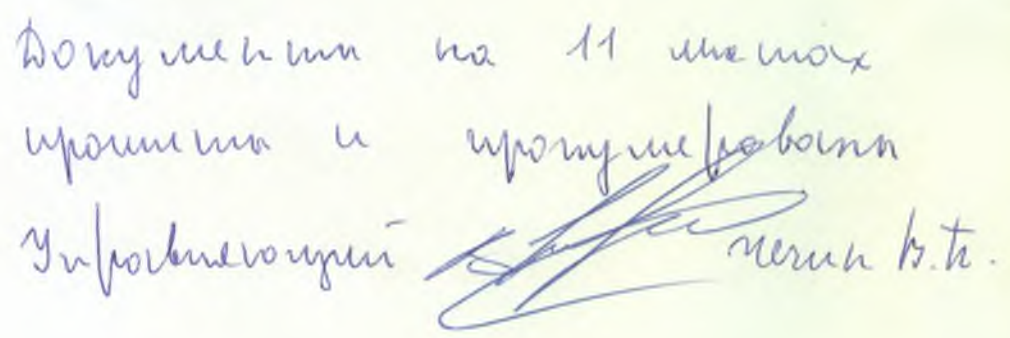 Документы на 11 листах
прошиты и пронумерованы
Управляющий